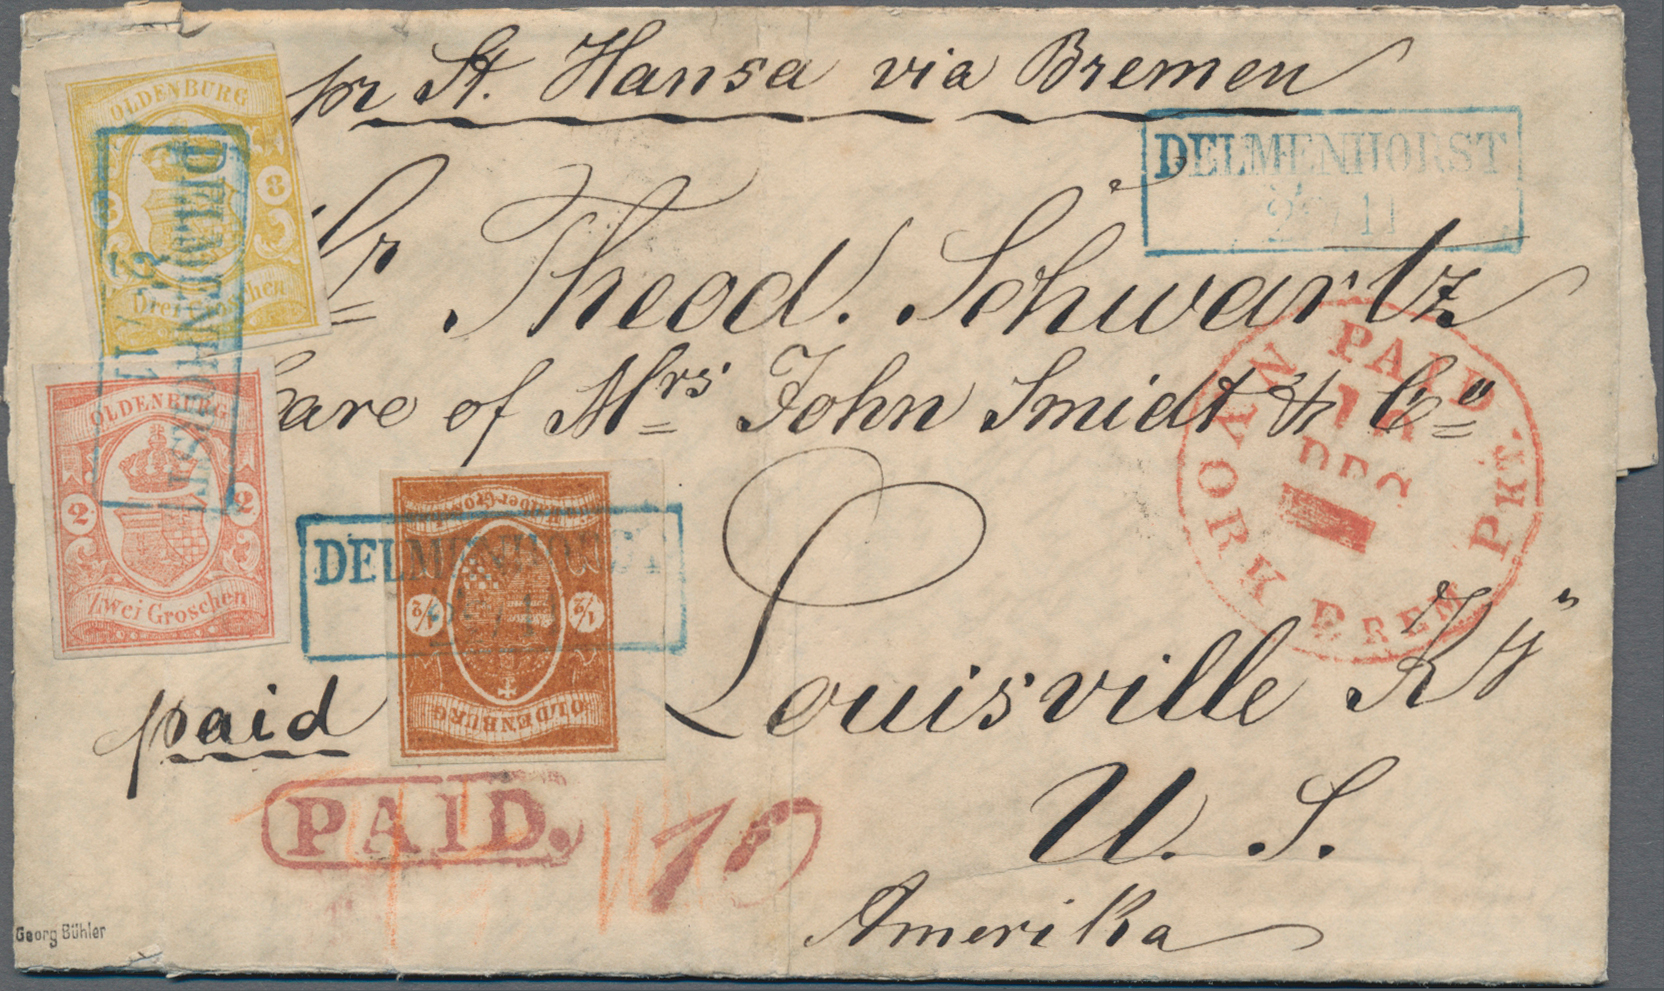 pr St. Hansa via Bremen
OLDENBURG
3 3
Drei Groschen
DELMENHORST
DELMENHORST
11
Mr Theod. Schwartz
Care of Mrs John Smidt & Co
OLDENBURG
2 2
Zwei Groschen
N. YORK BREM. PKT.
PAID
DEC
DELMENHORST
1/2 1/2
OLDENBURG
Louisville Ky
paid
PAID.
10
U. S.
Amerika
Georg Bühler